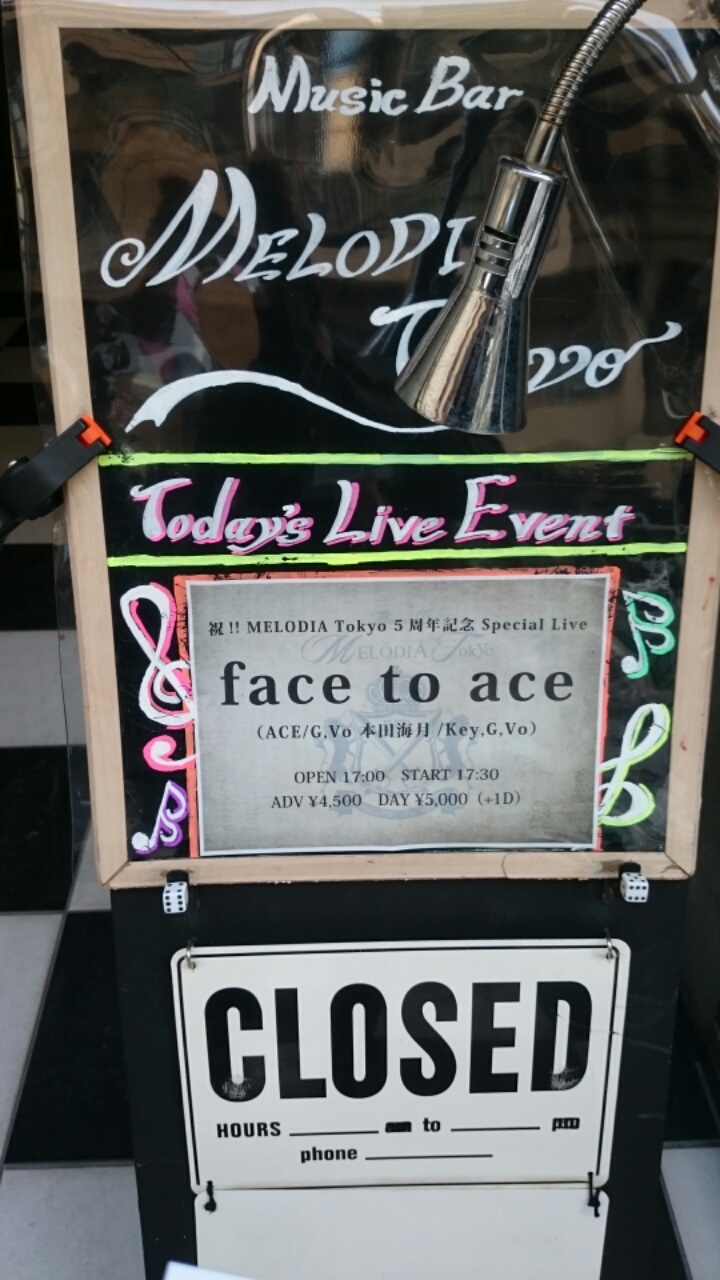 Music Bar
MELODI
Today's Live Event
祝!! MELODIA Tokyo 5周年記念 Special Live
MELODIA Tokyo
face to ace
(ACE/G,Vo 本田海月/Key,G,Vo)
OPEN 17:00 START 17:30
ADV ¥4,500 DAY ¥5,000 (+1D)
CLOSED
HOURS am to pm
phone